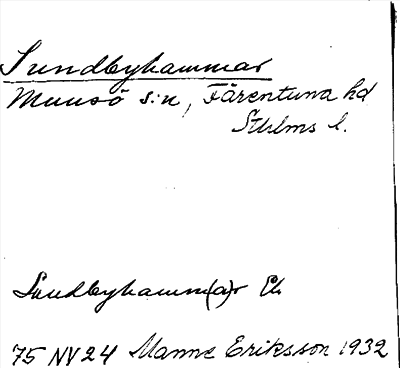 Sundbyhammar
Munsö s:n, Färentuna hd
Sthlms l.
Sundbyhamm(a)r Ek
75 NV 24 Manne Eriksson 1932